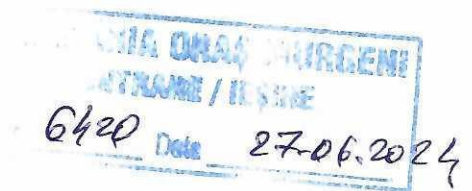 ORAȘ MURGENI
INTRARE / IEȘIRE
6420 Data 27.06.2024